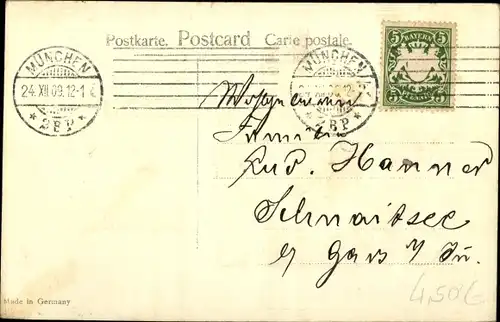 Postkarte. Postcard Carte postale.
MÜNCHEN
24.XII.09.12-1
* 2BP *
MÜNCHEN
* 2BP *
5 BAYERN 5
5 PFENNIG 5
Familie
Rud. Hanner
Schnaitsee
Gars
4,50
Made in Germany